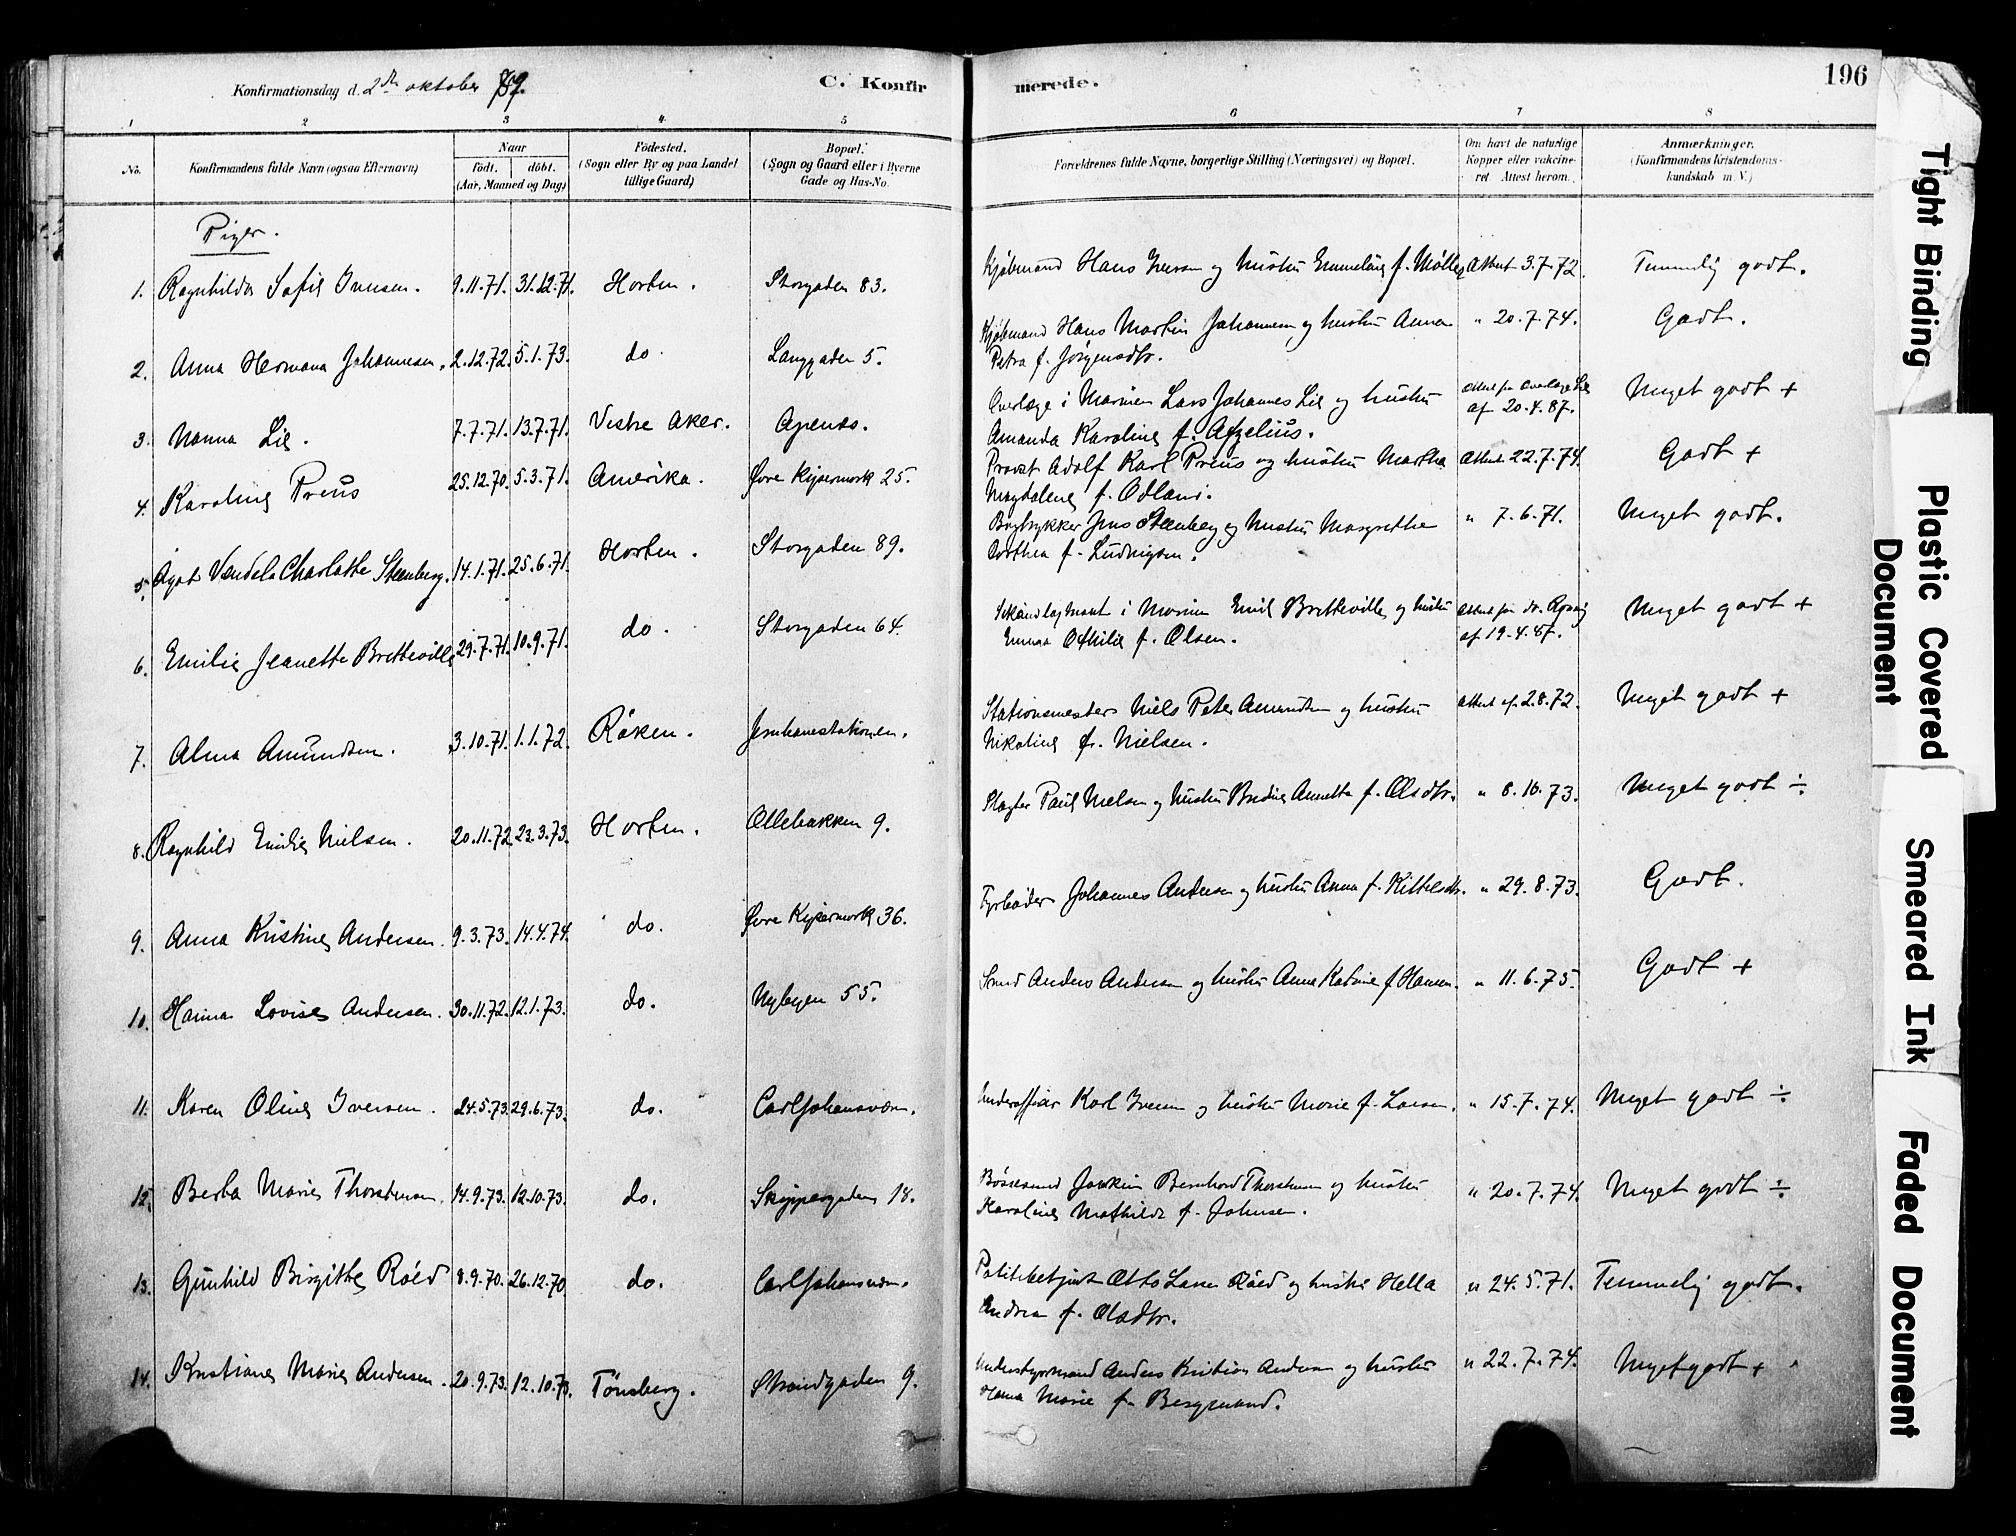 Konfirmationsdag d. 2den oktober 87.
C. Konfir
merede.
196
1 2 3 4 5 6 7 8
No.
Konfirmandens fulde Navn (ogsaa Efternavn)
Naar
født. døbt.
(Aar, Maaned og Dag)
Fødested.
(Sogn eller By og paa Landet
tillige Gaard)
Bopæl.
(Sogn og Gaard eller i Byerne
Gade og Hus-No.
Forældrenes fulde Navne, borgerlige Stilling (Næringsvei) og Bopæl.
Om havt de naturlige
Kopper eller vakcine-
ret. Attest herom.
Anmærkninger.
(Konfirmandens Kristendoms-
kundskab m. V.)
Piger.
1. Ragnhilda Sofie Iversen. 9.11.71. 31.12.71. Horten. Storgaden 83. Kjøbmand Hans Iversen og hustru Emmeline f. Møller Attest 3.7.72. Temmelig godt.
2. Anna Hermana Johannesen. 2.12.72. 5.1.73. do. Langgaden 5. Kjøbmand Hans Martin Johannesen og hustru Anna " 20.7.74. Godt.
Petra f. Jörgensdtr.
3. Nanna Lie. 7.7.71. 13.7.71. Vestre Aker. Apenes. Overlæge i Marinen Lars Johannes Lie og hustru Attest fra Overlæge Lie Meget godt +
Amanda Karoline f. Afzelius. af 20.4.87.
4. Karoline Preus 25.12.70. 5.3.71. Amerika. Øvre Keisermark 25. Provst Adolf Karl Preus og hustru Martha Attest 22.7.74. Godt +
Magdalene f. Odland.
5. Agat Vendela Charlotte Steenberg. 14.1.71. 25.6.71. Horten. Storgaden 89. Bogtrykker Jens Steenberg og hustru Margrethe " 7.6.71. Meget godt.
Dorthea f. Ludvigsen.
6. Emilie Jeanette Bretteville 29.7.71. 10.9.71. do. Storgaden 64. Sekondløjtnant i Marinen Emil Bretteville og hustru Attest fra dr. Meget godt +
Emma Othilie f. Olsen. af 19.4.87.
7. Alma Amundsen. 3.10.71. 1.1.72. Röken. Jernbanestationen. Stationsmester Niels Peter Amundsen og hustru Attest af 2.8.72. Meget godt +
Nikoline f. Nielsen.
8. Ragnhild Emilie Nielsen. 20.11.72. 23.3.73. Horten. Ollebakken 9. Slagter Paul Nielsen og hustru Bredine Annette f. Olsdtr. " 8.10.73. Meget godt ÷
9. Anna Kristine Andersen. 9.3.73. 14.4.74. do. Øvre Keisermark 36. Fyrbøder Johannes Andersen og hustru Anna f. Kittelsdtr. " 29.8.73. Godt.
10. Hanna Lovise Andersen. 30.11.72. 12.1.73. do. Nybyen 55. Smed Anders Andersen og hustru Anne Katrine f. Hansen. " 11.6.75. Godt +
11. Karen Oline Iversen. 24.5.73. 29.6.73. do. Carljohansværn. Underofficier Karl Iversen og hustru Marie f. Larsen. " 15.7.74. Meget godt ÷
12. Berta Marie Thorstensen. 14.9.73. 12.10.73. do. Skippergaden 18. Bössesmed Joakim Bernhard Thorstensen og hustru " 20.7.74. Meget godt ÷
Karoline Mathilde f. Johnsen.
13. Gunhild Birgitte Röed 8.9.70. 26.12.70 do. Carljohansværn. Politibetjent Otto Larsen Röed og hustru Hella " 24.5.71. Temmelig godt.
Andrea f. Olsdtr.
14. Kristiane Marie Andersen. 20.9.73. 12.10.73. Tönsberg. Strandgaden 9. Understyrmand Anders Kristian Andersen og hustru " 22.7.74. Meget godt +
Hanna Marie f. Bergmand.
Tight Binding
Plastic Covered
Document
Smeared Ink
Faded Document